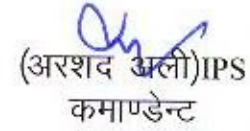 (अरशद अली)IPS
कमाण्डेन्ट